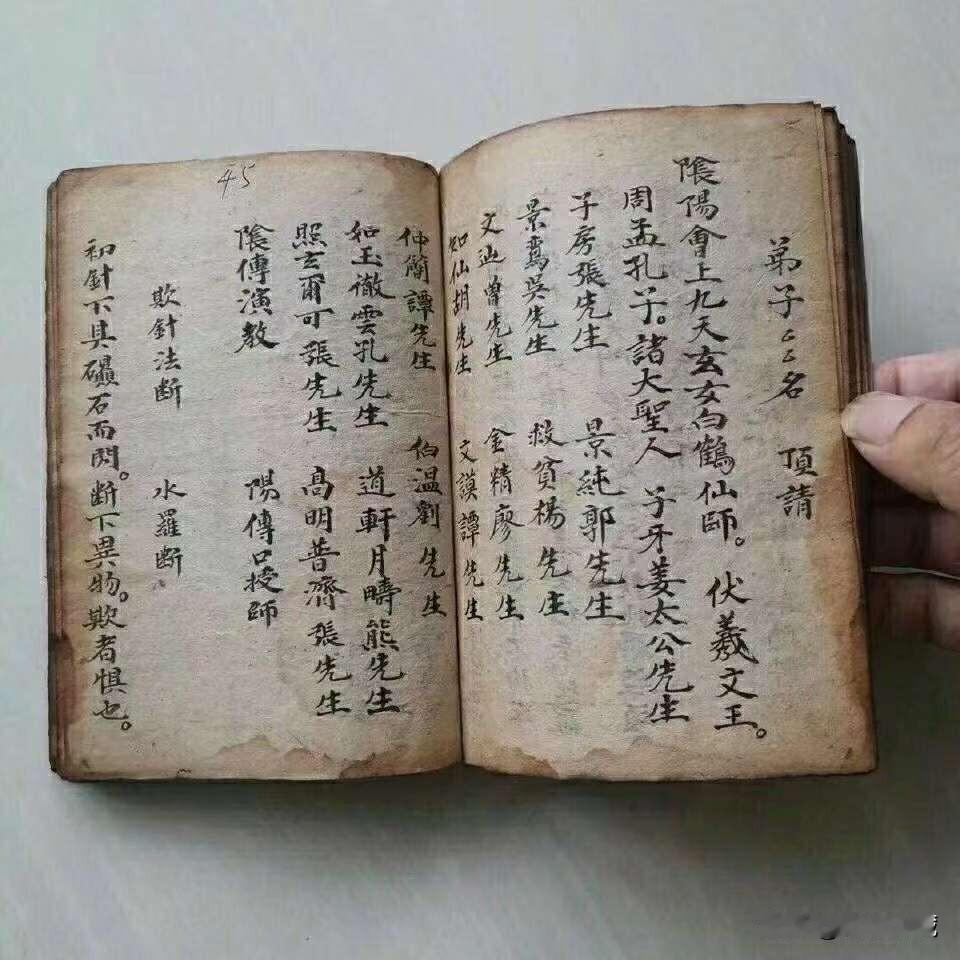 弟子〻〻名　頂請
陰陽會上九天玄女白鶴仙師。伏羲文王。
周孟孔子。諸大聖人　子牙姜太公先生
子房張先生　景純郭先生
景鸞吳先生　救貧楊先生
文辿曾先生　金精廖先生
知仙胡先生　文謨譚先生
仲簡譚先生　伯温劉先生
如玉徹雲孔先生　道軒月疇熊先生
照玄爾可張先生　高明普濟張先生
陰傳演教　陽傳口授師
45
欺針法斷　水羅斷
初針下其礦石而閃。斷下異物。欺者惧也。